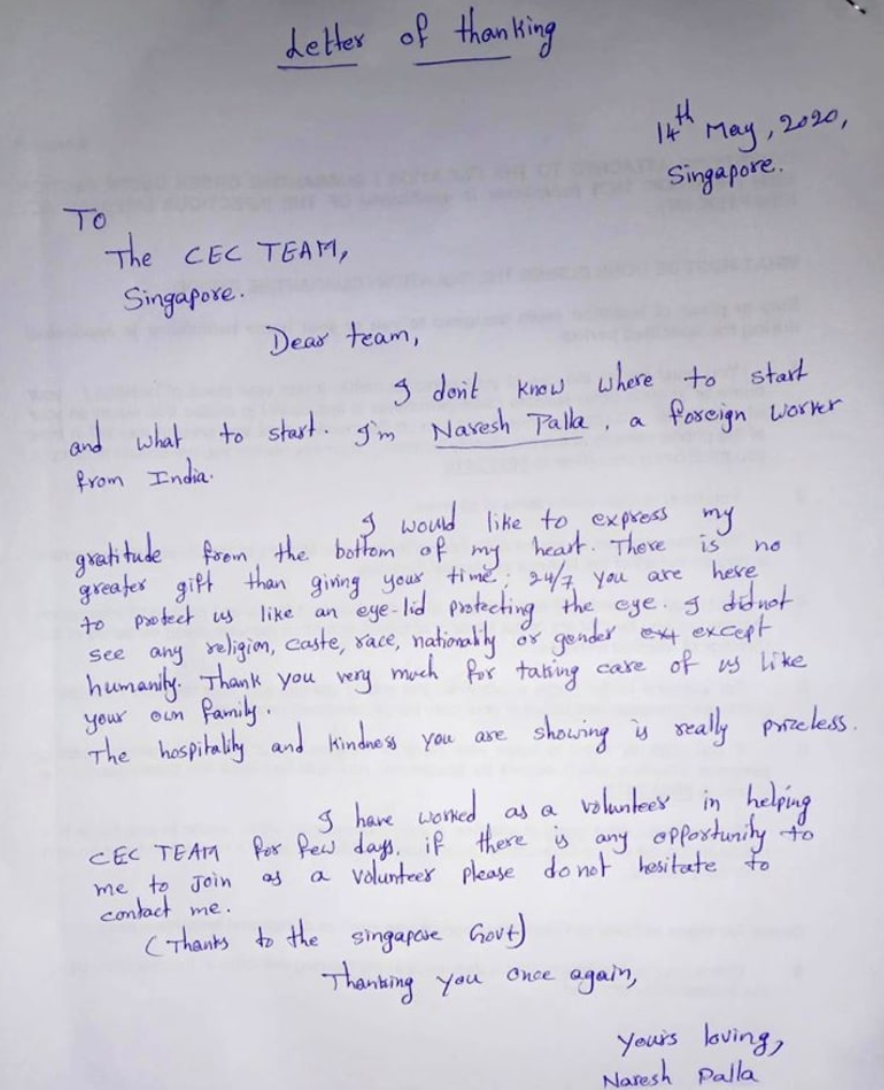 Letter of thanking
14th May, 2020,
Singapore.
To
The CEC TEAM,
Singapore.
Dear team,
I don't know where to start
and what to start. I'm Naresh Palla, a foreign worker
from India.
I would like to express my
gratitude from the bottom of my heart. There is no
greater gift than giving your time; 24/7 you are here
to protect us like an eye-lid protecting the eye. I didnot
see any religion, caste, race, nationality or gender ext except
humanity. Thank you very much for taking care of us like
your own family.
The hospitality and kindness you are showing is really priceless.
I have worked as a volunteer in helping
CEC TEAM for few days. if there is any opportunity to
me to join as a volunteer please donot hesitate to
contact me.
(Thanks to the singapore Govt)
Thanking you once again,
Yours loving,
Naresh Palla